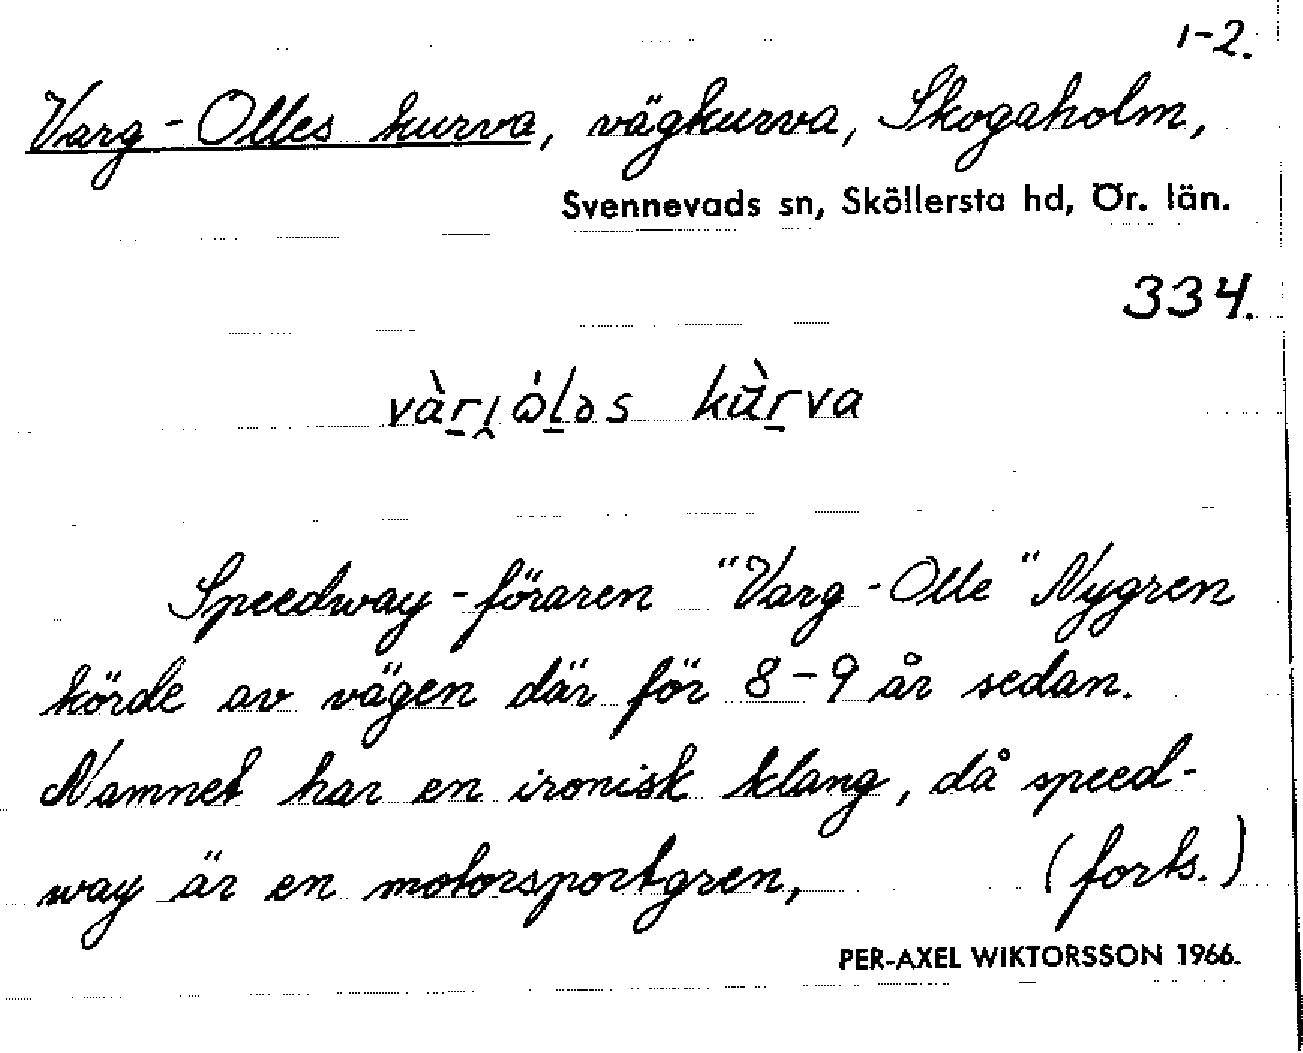 1-2.
Varg-Olles kurva, vägkurva, Skogaholm,
Svennevads sn, Sköllersta hd, Ör. län.
334.
kùrva
Speedway-föraren "Varg-Olle" Nygren
körde av vägen där för 8-9 år sedan.
Namnet har en ironisk klang, då speed-
way är en motorsportgren, (forts.)
PER-AXEL WIKTORSSON 1966.